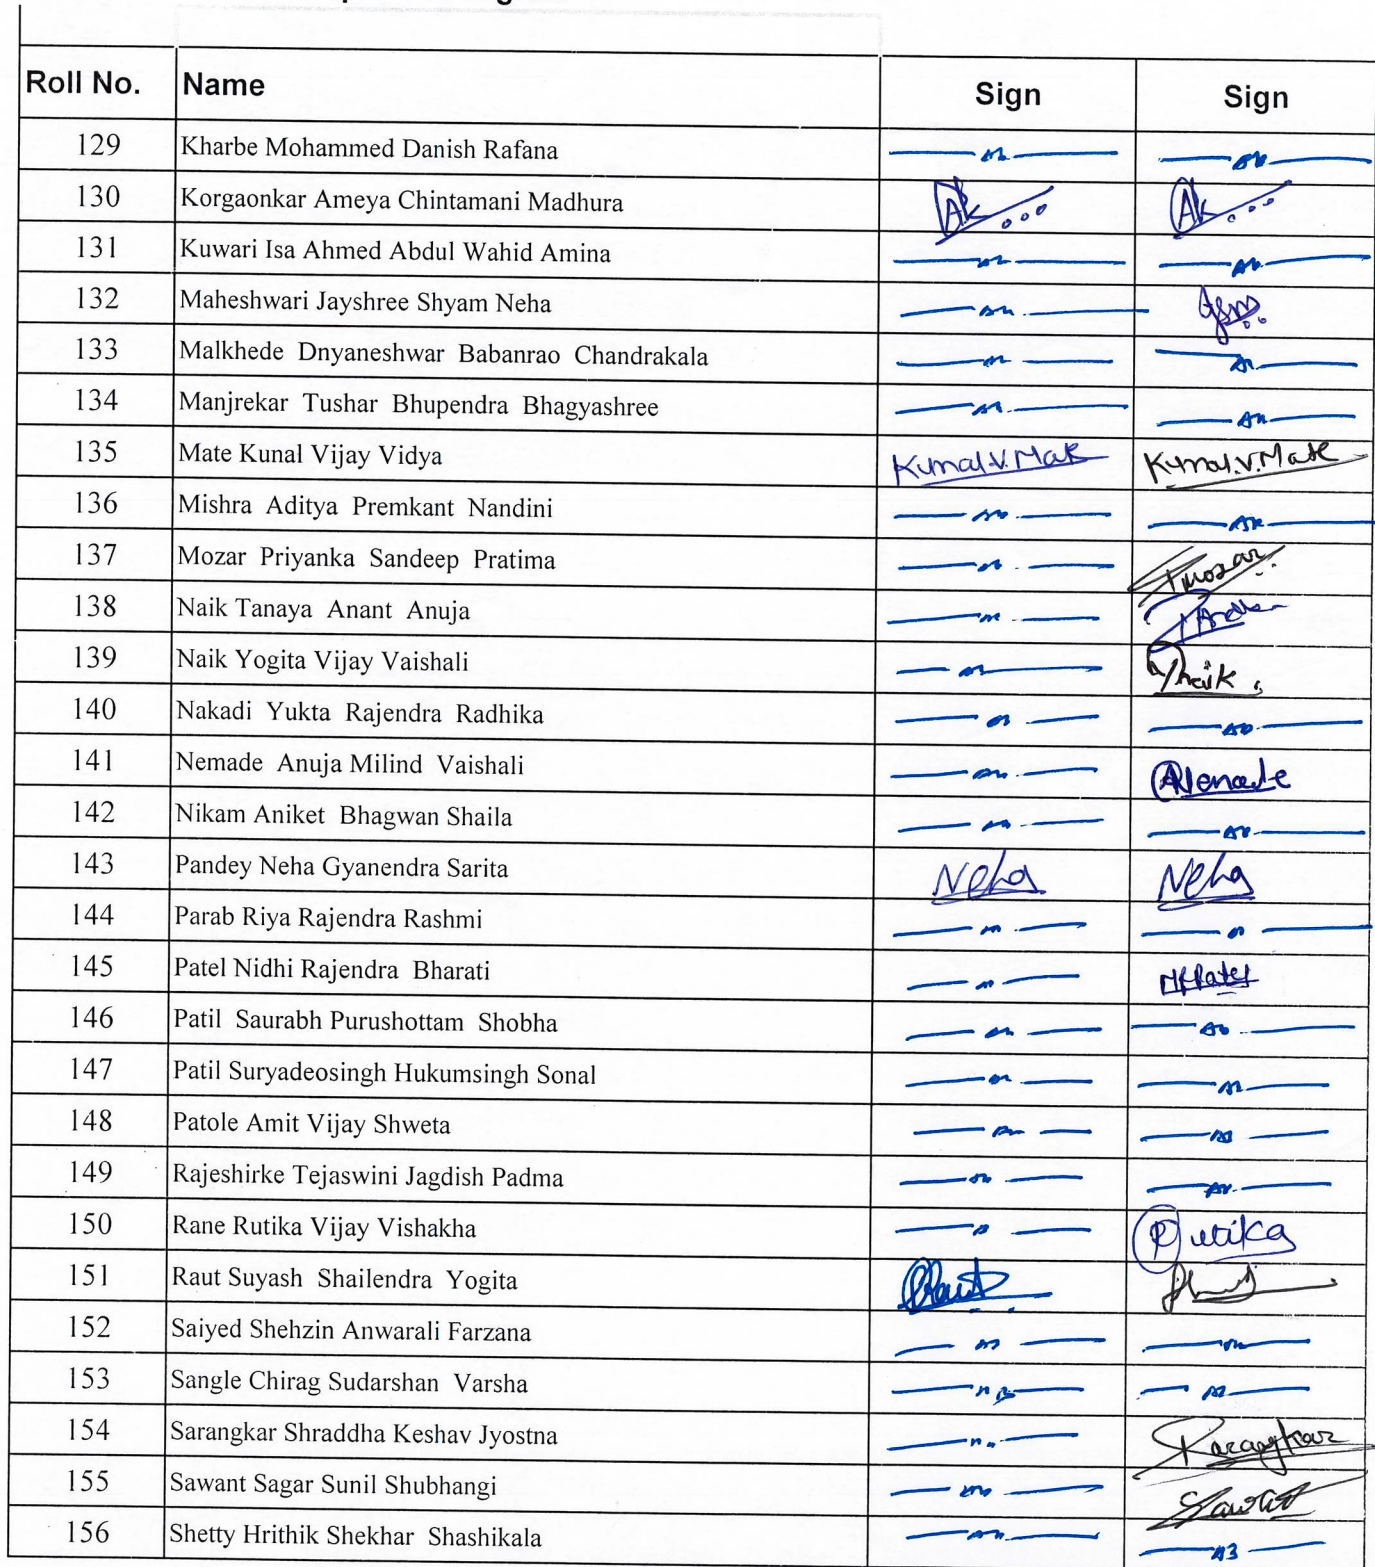 Roll No. Name Sign Sign
129 Kharbe Mohammed Danish Rafana Ab Ab
130 Korgaonkar Ameya Chintamani Madhura Ak Ak
131 Kuwari Isa Ahmed Abdul Wahid Amina Ab Ab
132 Maheshwari Jayshree Shyam Neha Ab
133 Malkhede Dnyaneshwar Babanrao Chandrakala Ab Ab
134 Manjrekar Tushar Bhupendra Bhagyashree Ab Ab
135 Mate Kunal Vijay Vidya Kunal.V.Mate Kunal.V.Mate
136 Mishra Aditya Premkant Nandini Ab Ab
137 Mozar Priyanka Sandeep Pratima Ab Pmozar
138 Naik Tanaya Anant Anuja Ab
139 Naik Yogita Vijay Vaishali Ab Ynaik
140 Nakadi Yukta Rajendra Radhika Ab Ab
141 Nemade Anuja Milind Vaishali Ab ANemade
142 Nikam Aniket Bhagwan Shaila Ab Ab
143 Pandey Neha Gyanendra Sarita Neha Neha
144 Parab Riya Rajendra Rashmi Ab Ab
145 Patel Nidhi Rajendra Bharati Ab NRPatel
146 Patil Saurabh Purushottam Shobha Ab Ab
147 Patil Suryadeosingh Hukumsingh Sonal Ab Ab
148 Patole Amit Vijay Shweta Ab Ab
149 Rajeshirke Tejaswini Jagdish Padma Ab Ab
150 Rane Rutika Vijay Vishakha Ab Rutika
151 Raut Suyash Shailendra Yogita
152 Saiyed Shehzin Anwarali Farzana Ab Ab
153 Sangle Chirag Sudarshan Varsha Ab Ab
154 Sarangkar Shraddha Keshav Jyostna Ab Sarangkar
155 Sawant Sagar Sunil Shubhangi Ab Sawant
156 Shetty Hrithik Shekhar Shashikala Ab Ab